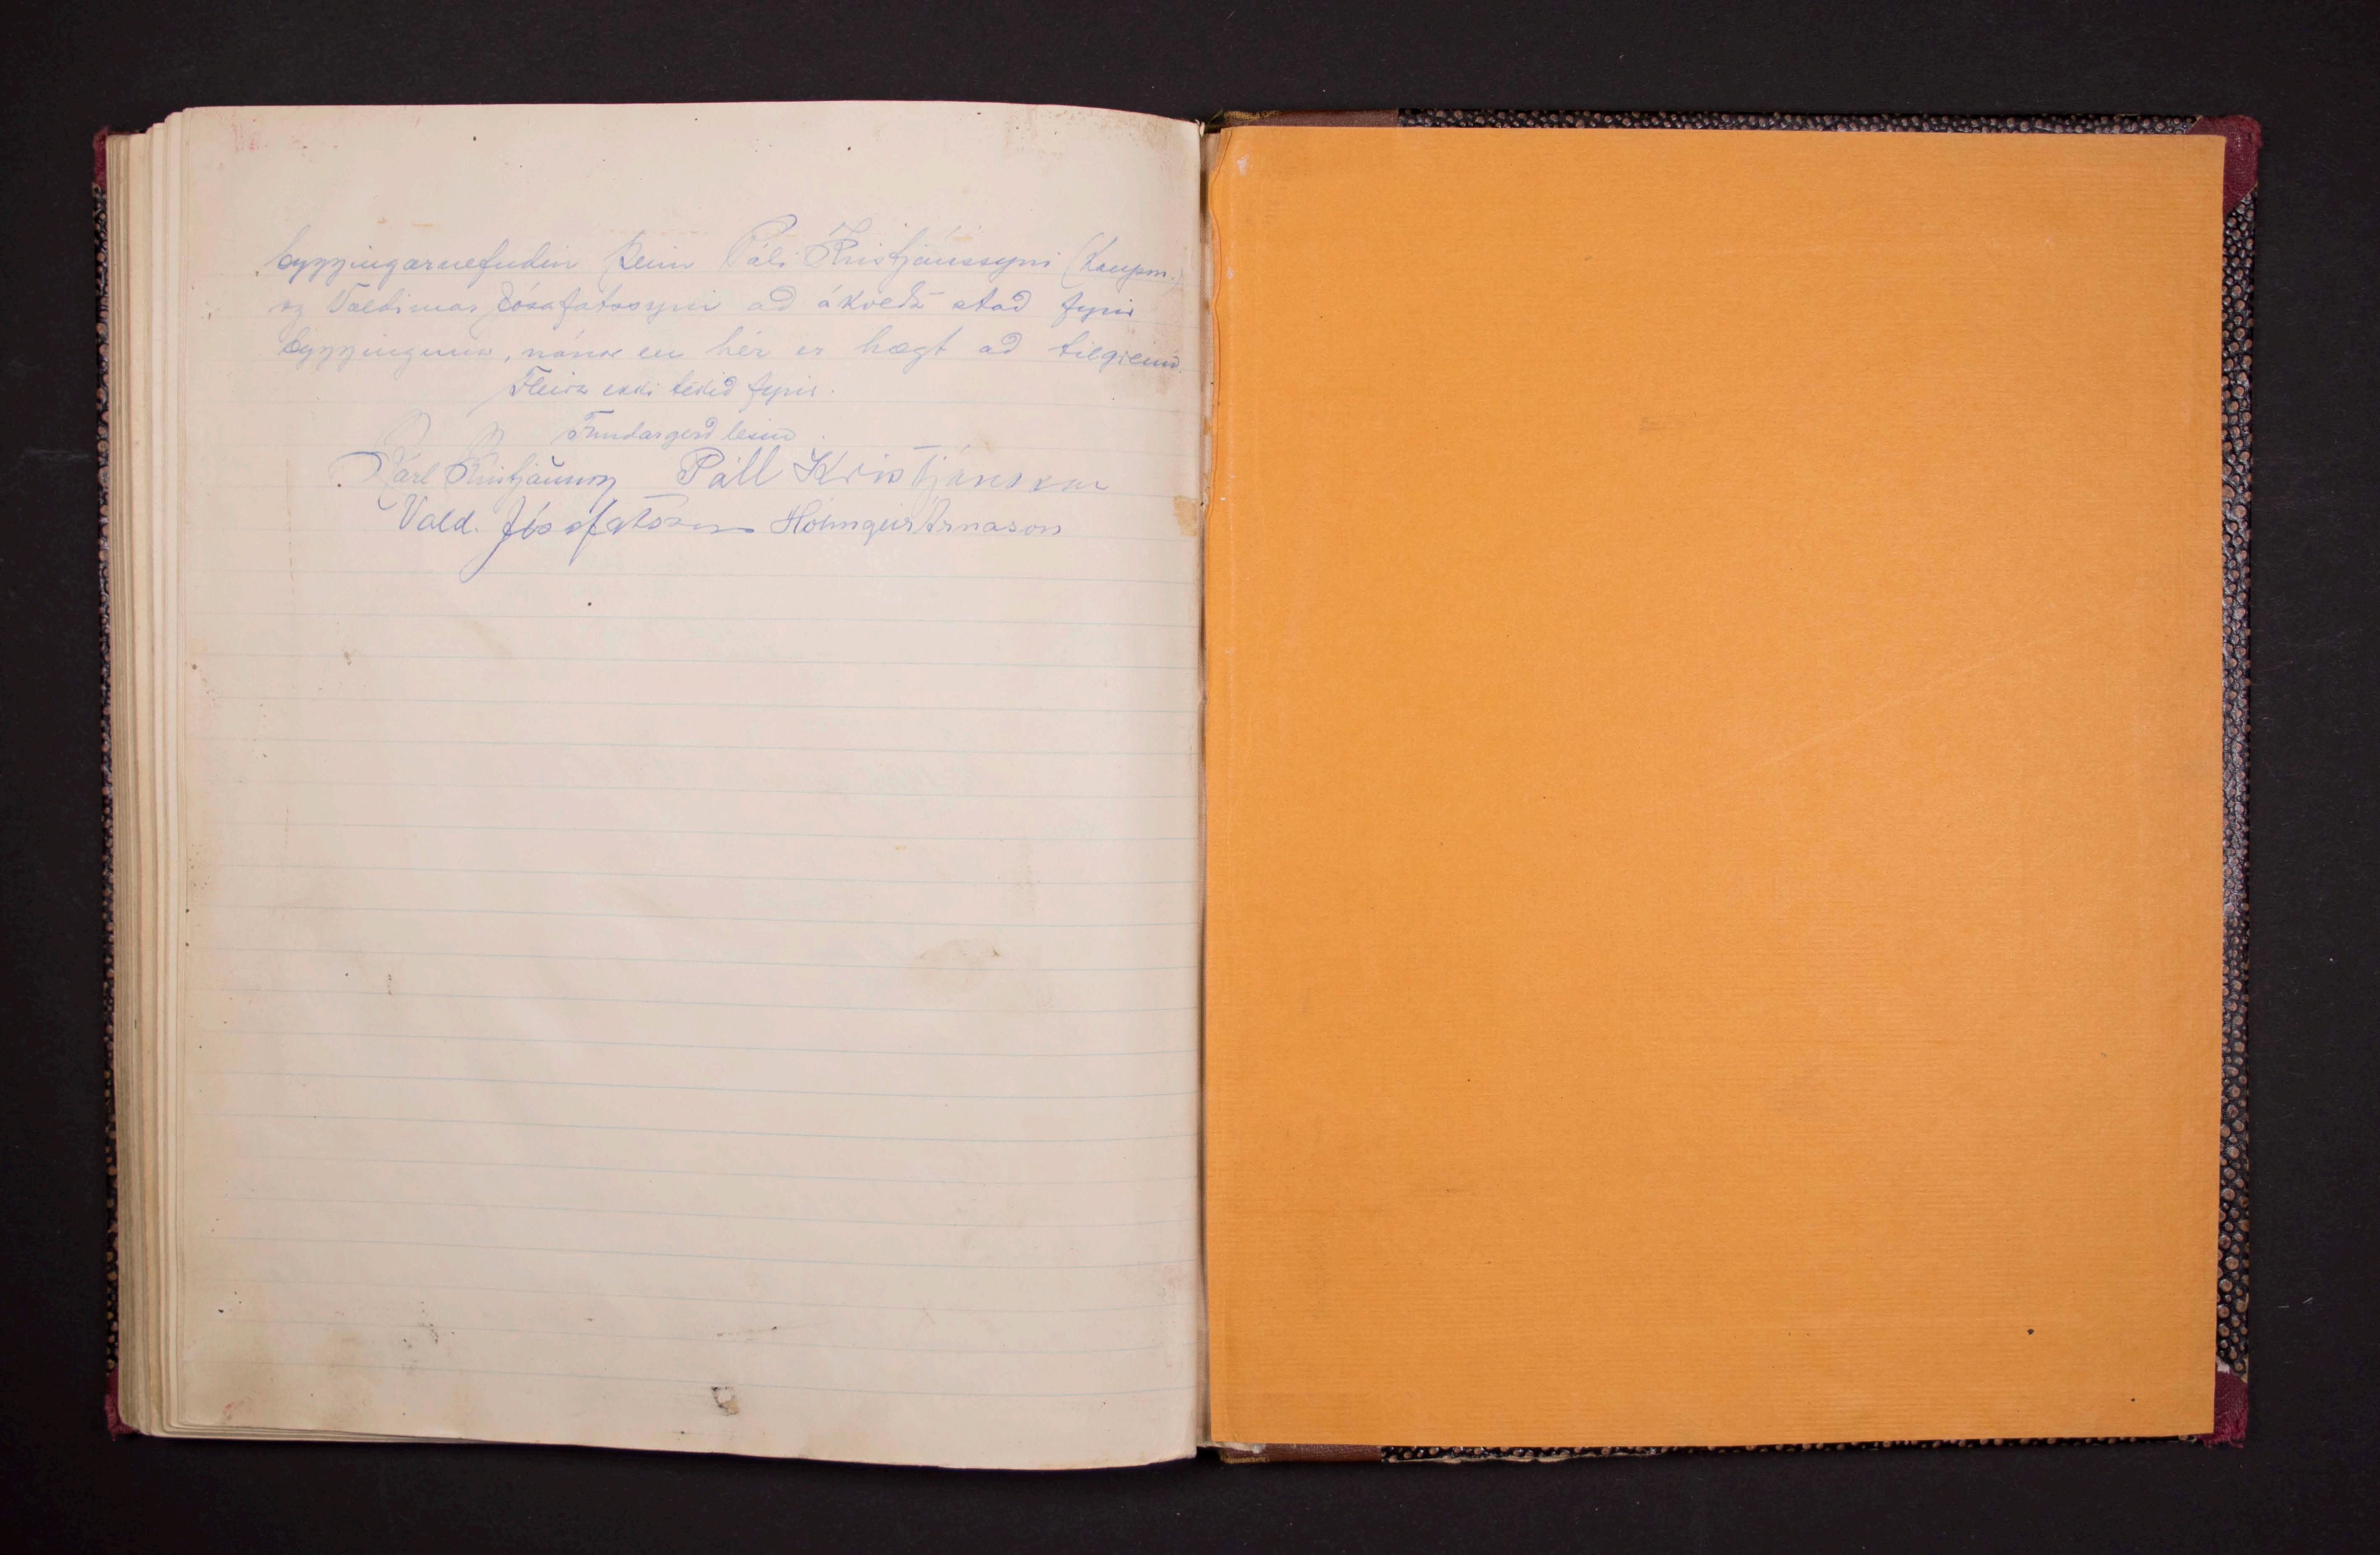 byggingarnefndin þeim Páli Kristjánssyni (Kaupm.)
og Valdimar Jósafatssyni að ákveða stað fyrir
bygginguna, nánar en hér er hægt að tilgreina.
Fleira ekki tekið fyrir.
Fundargerð lesin.
Karl Kristjánsson Páll Kristjánsson
Vald. Jósafatsson Hólmgeir Árnason